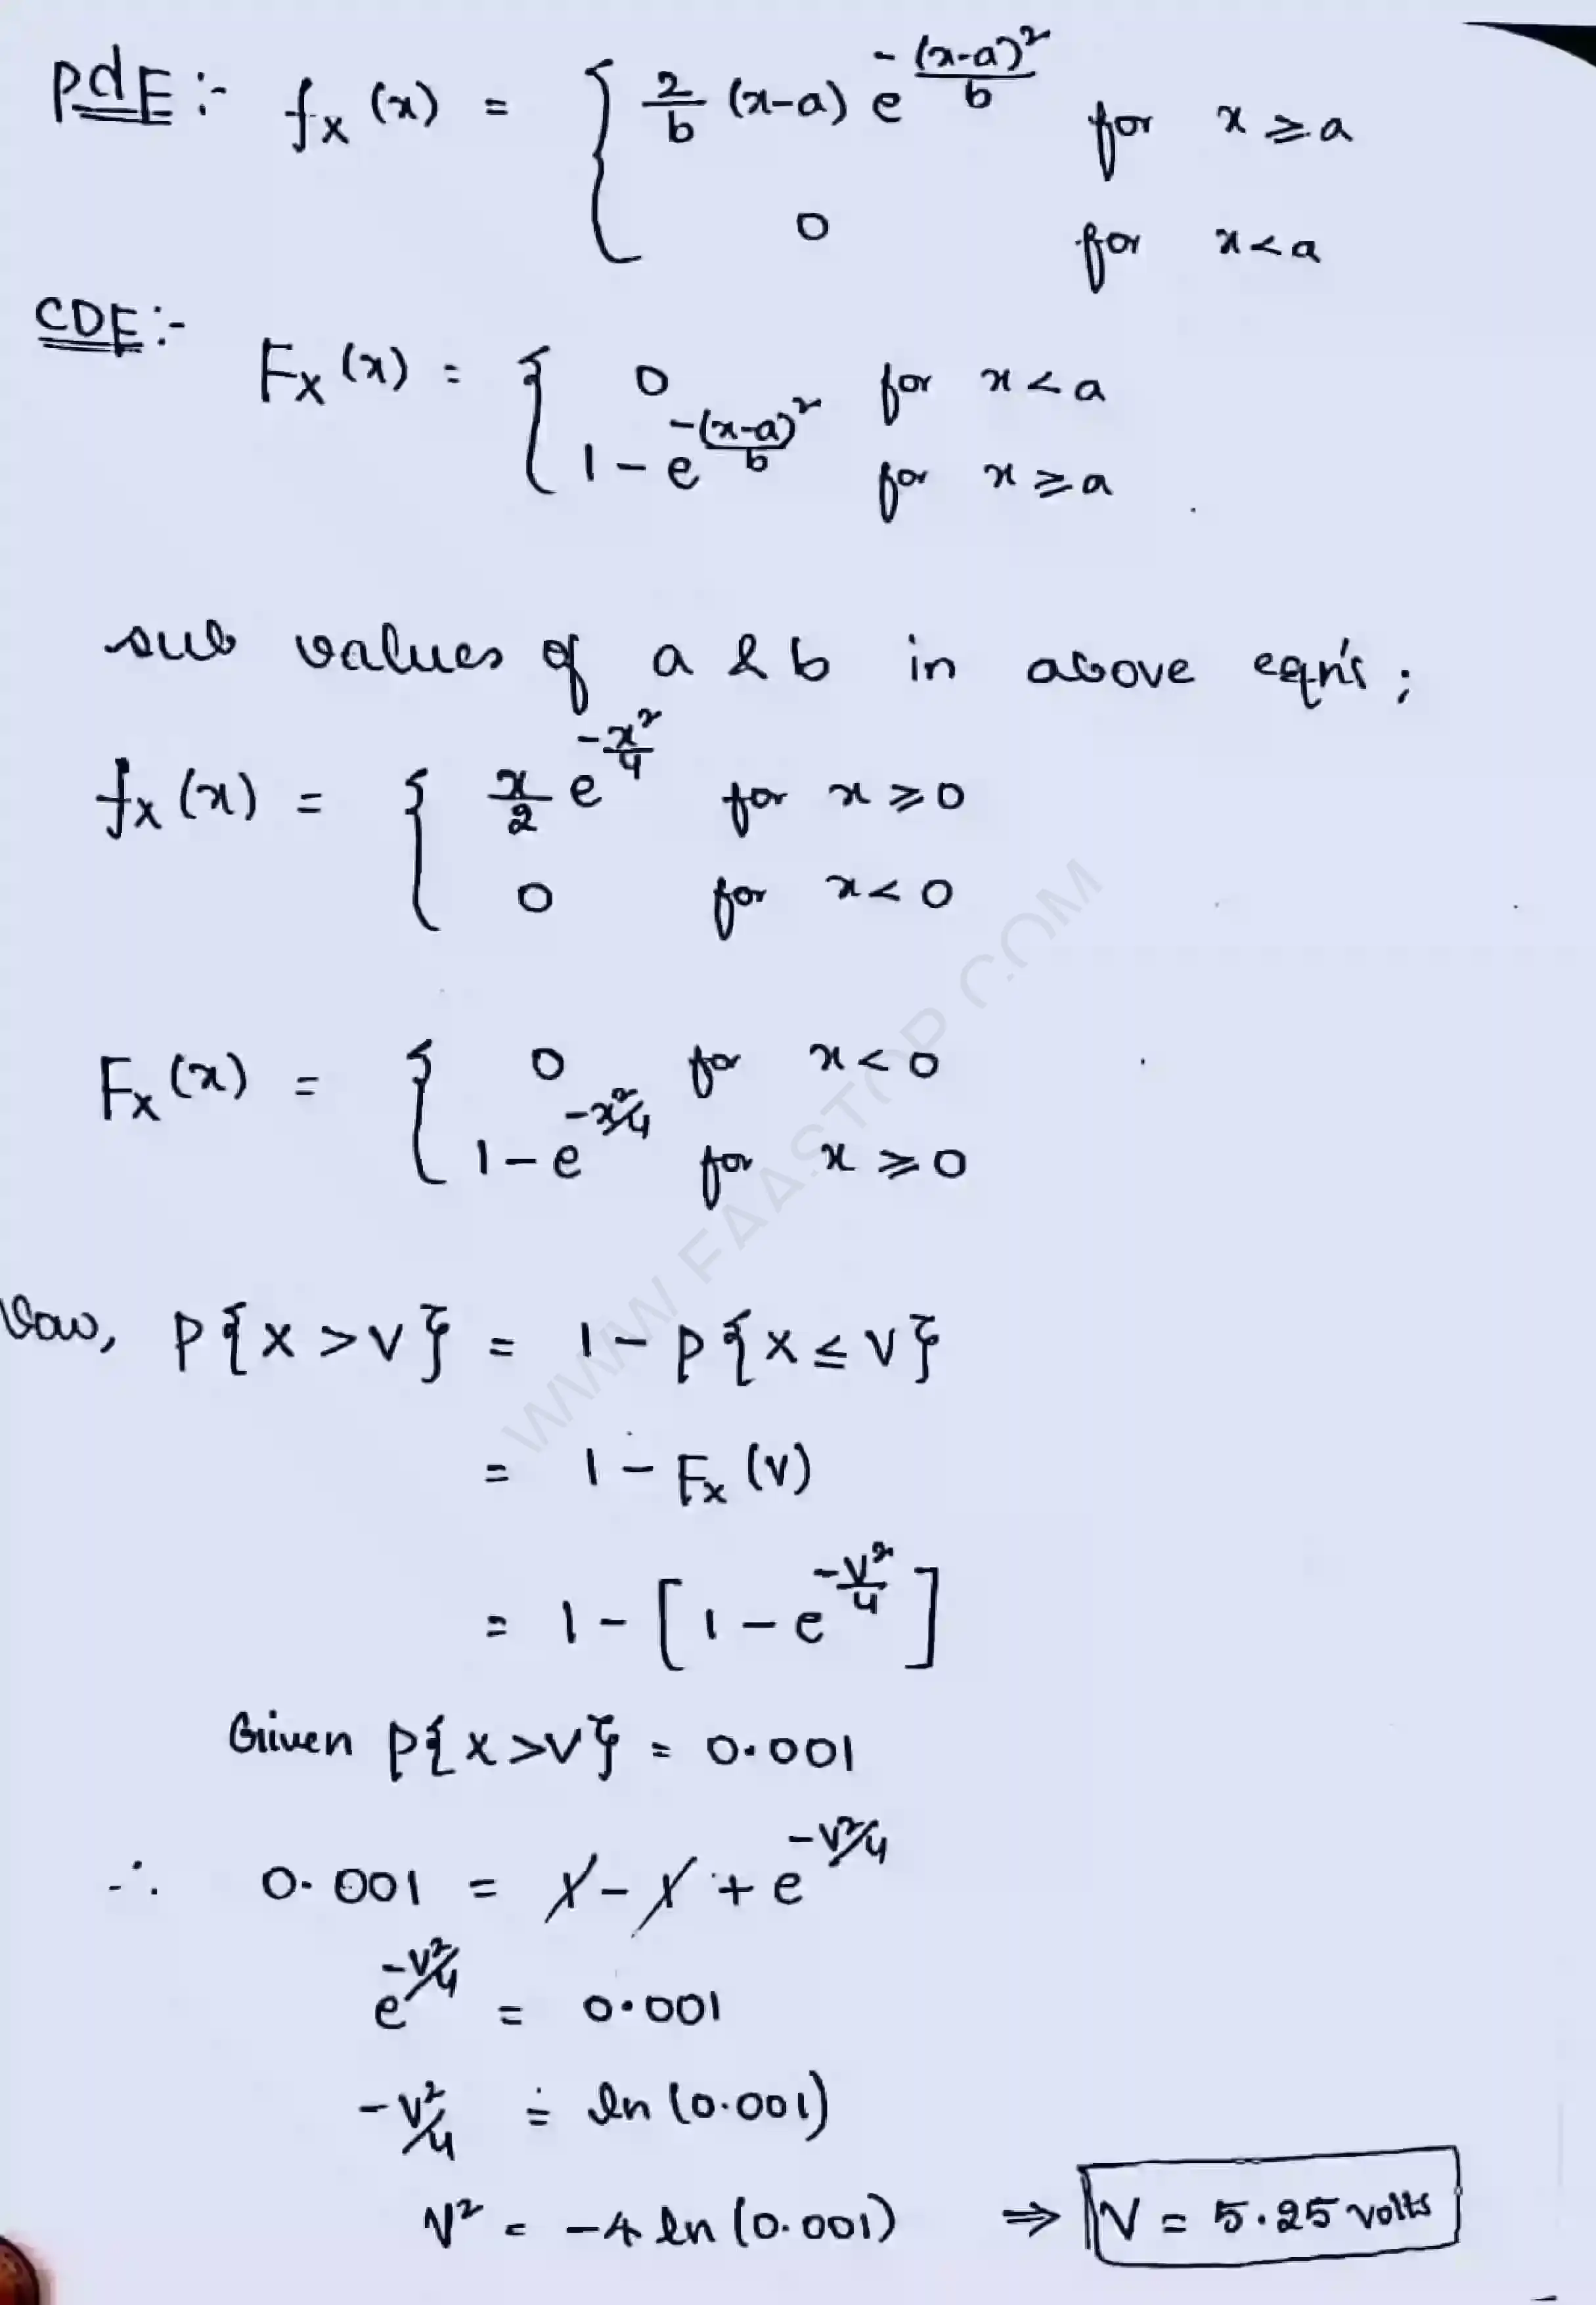 Pdf :- fx (x) = { 2/b (x-a) e^-(x-a)²/b for x ≥ a
0 for x < a
CDF :-
Fx (x) = { 0 for x < a
1 - e^-(x-a)²/b for x ≥ a
sub values of a & b in above eqn's ;
fx (x) = { x/2 e^-x²/4 for x ≥ 0
0 for x < 0
Fx (x) = { 0 for x < 0
1 - e^-x²/4 for x ≥ 0
Now, P{X > V} = 1 - P{X ≤ V}
= 1 - Fx (V)
= 1 - [1 - e^-V²/4]
Given P{X > V} = 0.001
∴ 0.001 = 1 - 1 + e^-V²/4
e^-V²/4 = 0.001
-V²/4 = ln (0.001)
V² = -4 ln (0.001) ⇒ V = 5.25 volts
WWW.FAASTOP.COM